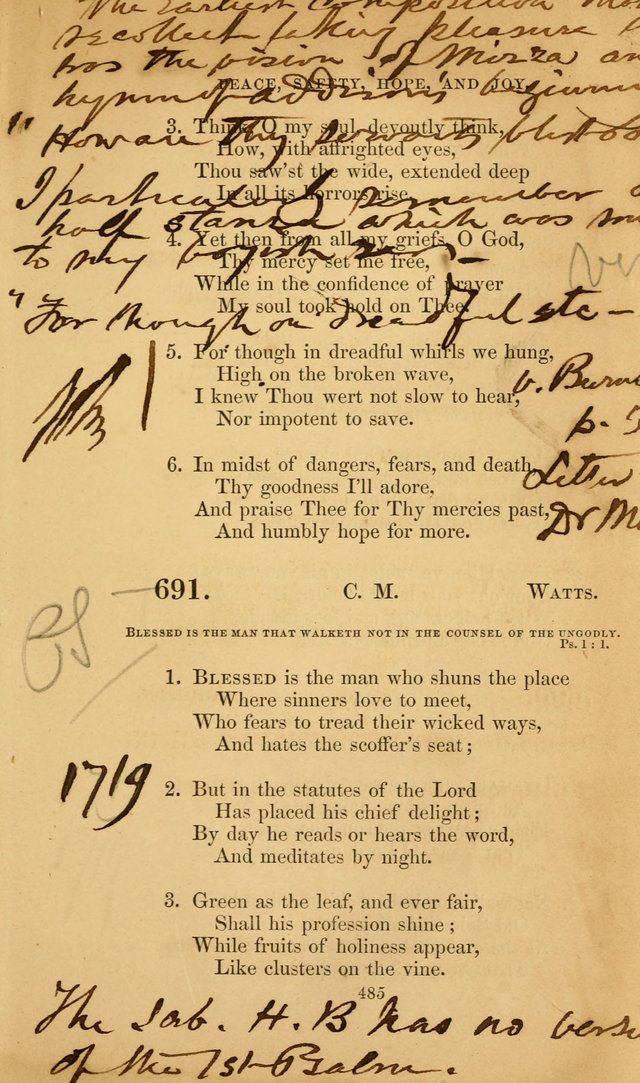 The earliest composition
recollect taking pleasure
was the vision of Mirza an
PEACE, SAFETY, HOPE, AND JOY.
hymn of addisons beginning
3. Think, O my soul, devoutly think,
"How are thy servants blest O
How, with affrighted eyes,
Thou saw'st the wide, extended deep
In all its horrors rise.
I particularly remember a
half stanza which was mu
4. Yet then from all my griefs, O God,
to my boyish ears—
Thy mercy set me free,
While in the confidence of prayer
My soul took hold on Thee.
"For though in Dreadful etc—
5. For though in dreadful whirls we hung,
High on the broken wave,
v. Burns
I knew Thou wert not slow to hear,
Nor impotent to save.
p. 5
6. In midst of dangers, fears, and death,
Letter
Thy goodness I'll adore,
And praise Thee for Thy mercies past,
Dr M
And humbly hope for more.
691. C. M. WATTS.
BLESSED IS THE MAN THAT WALKETH NOT IN THE COUNSEL OF THE UNGODLY.
Ps. 1 : 1.
1. BLESSED is the man who shuns the place
Where sinners love to meet,
Who fears to tread their wicked ways,
And hates the scoffer's seat;
1719
2. But in the statutes of the Lord
Has placed his chief delight;
By day he reads or hears the word,
And meditates by night.
3. Green as the leaf, and ever fair,
Shall his profession shine;
While fruits of holiness appear,
Like clusters on the vine.
485
The Sab. H. B has no versi
of the 1st Psalm.